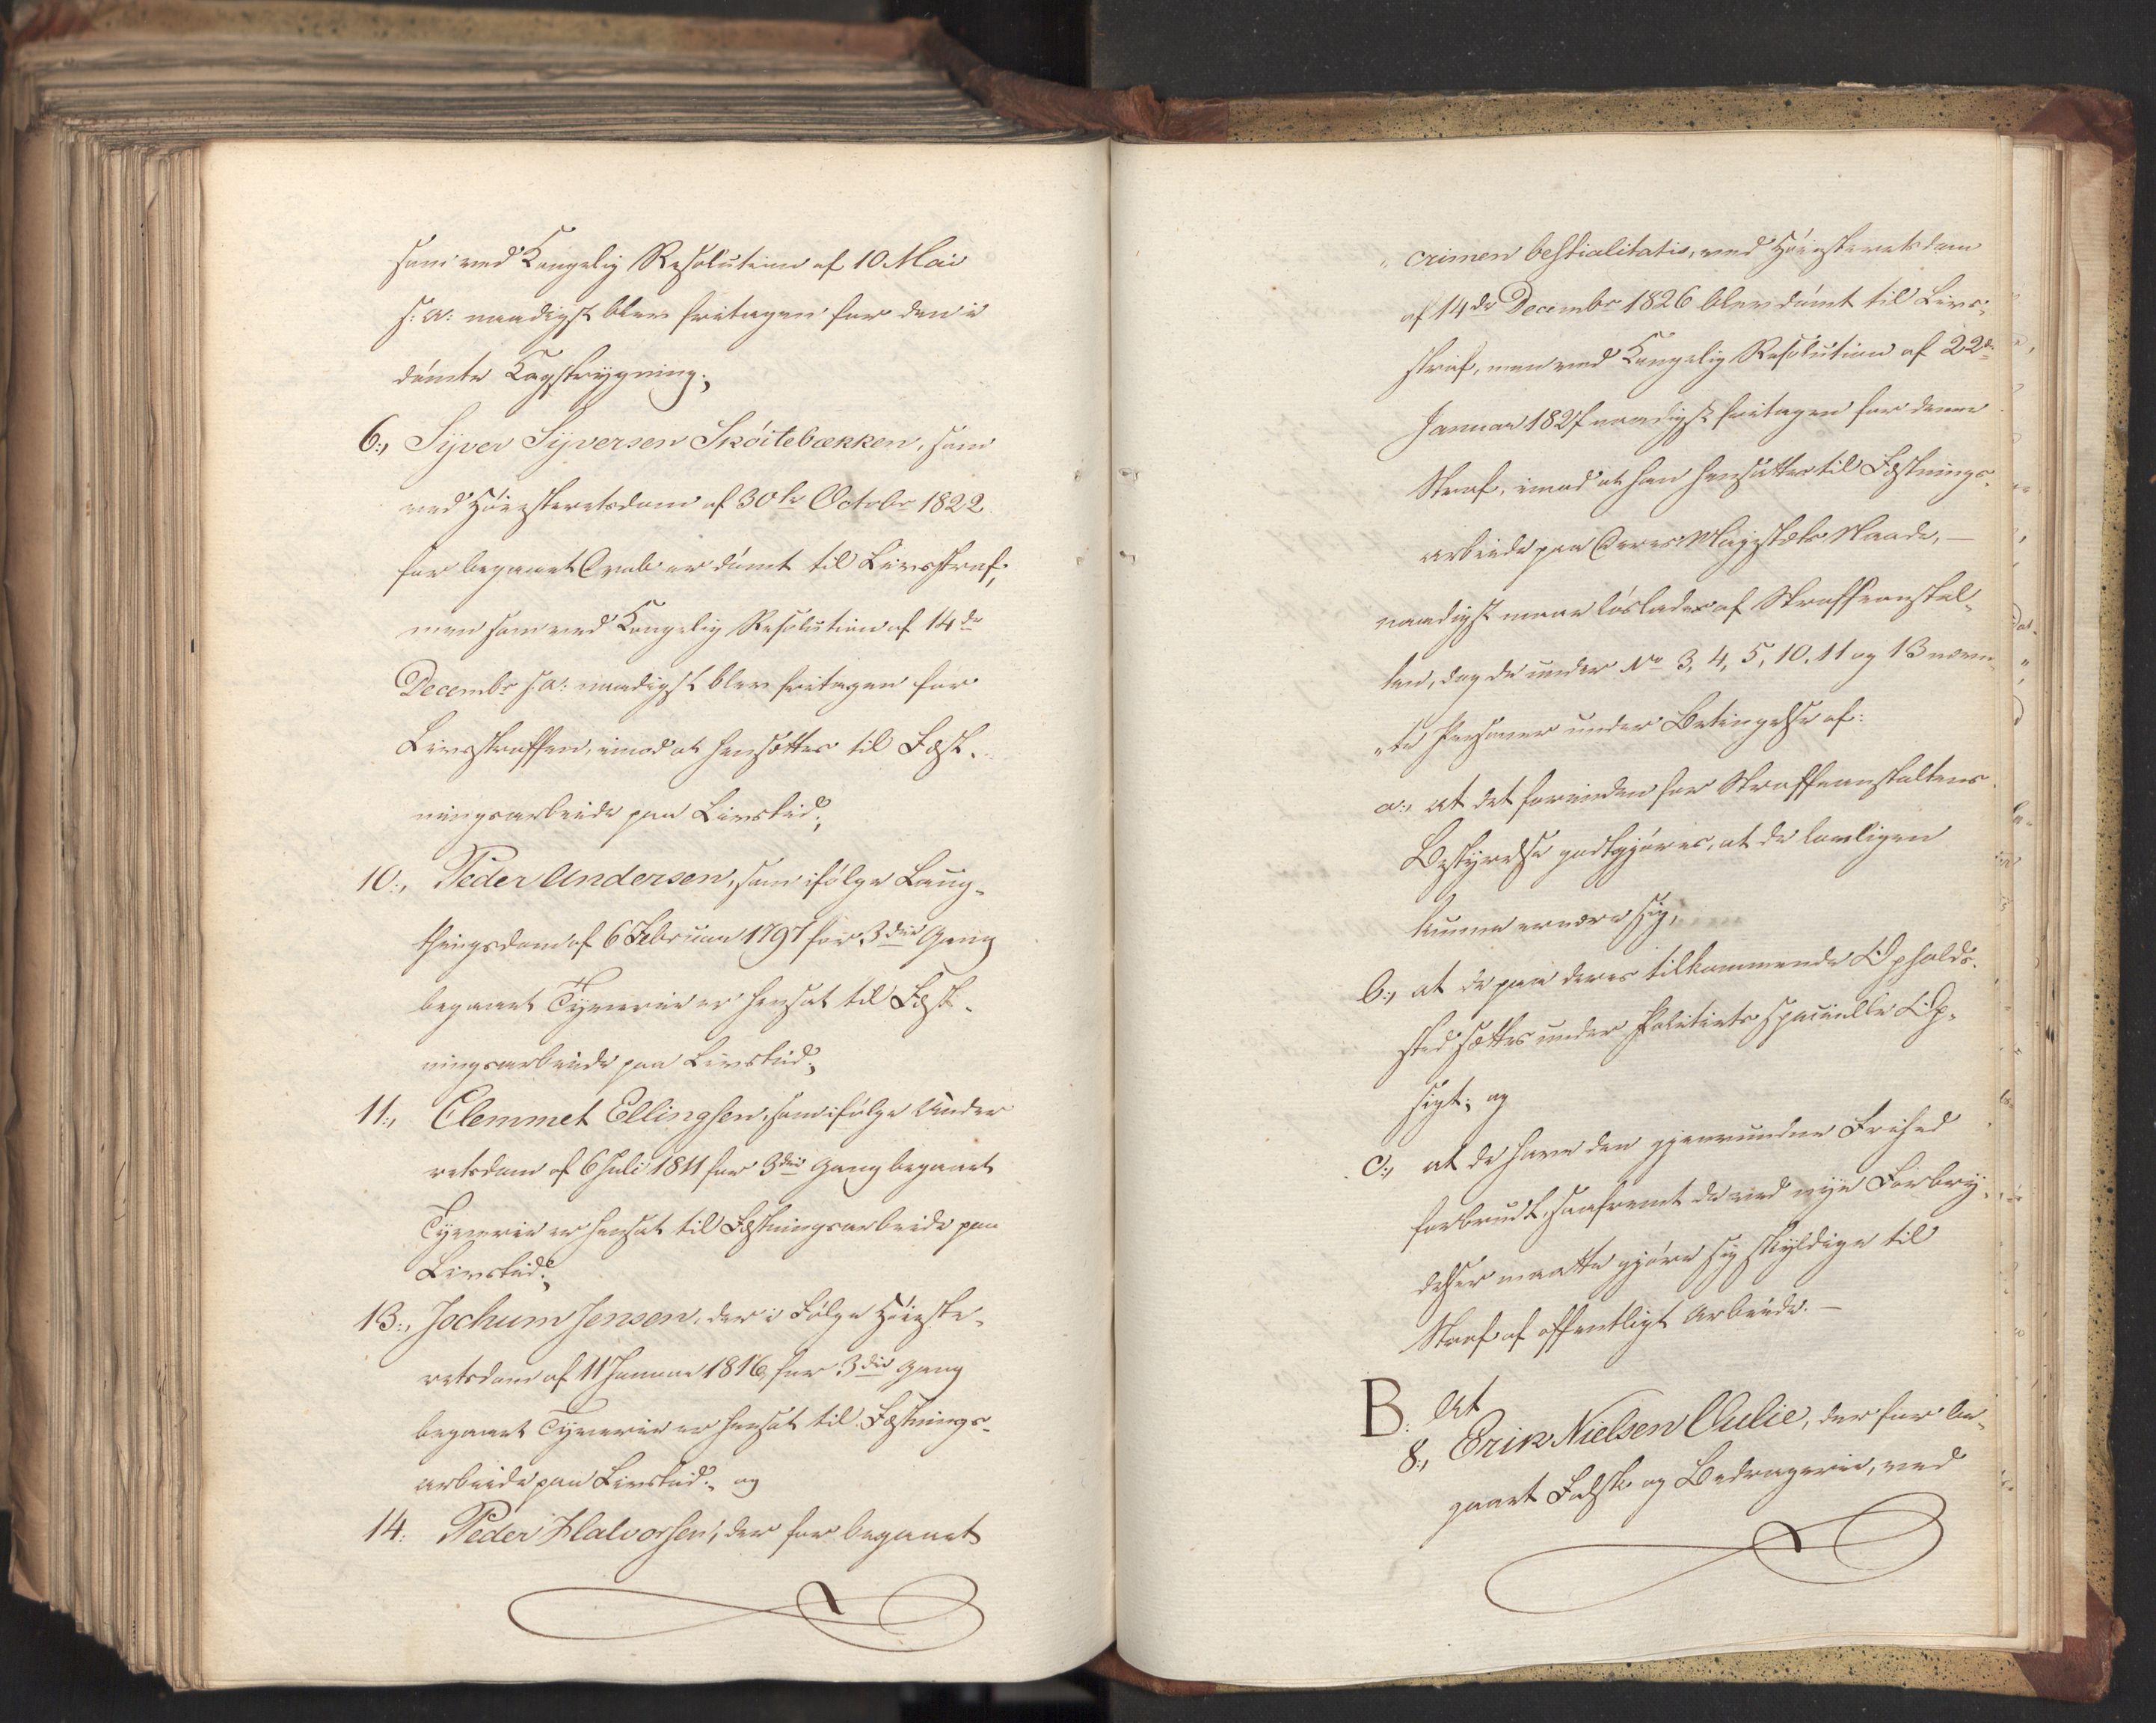 som ved Kongelig Resolution af 10 Mai
s: A: naadigst blev fritagen for den i
dømte Kagstrygning;
6:, Syver Syversen Sköitebækken, som
ved Höiesteretsdom af 30te Octobr 1822
for begaaet Drab er dömt til Livsstraf,
men som ved Kongelig Resolution af 14de
Decembr s: A: naadigst blev fritagen for
Livsstraffen, imod at hensættes til Fæst-
ningsarbeide paa Livstid;
10:, Peder Andersen, som ifölge Laug-
thingsdom af 6 Februar 1797 for 3die Gang
begaaet Tyverie er hensat til Fæst-
ningsarbeide paa Livstid;
11:, Clemmet Ellingsen, som ifölge Under
retsdom af 6 Juli 1811 for 3die Gang begaaet
Tyverie er hensat til Fæstningsarbeide paa
Livstid;
13:, Jochum Jensen, der i Fölge Höieste-
retsdom af 11 Januar 1816 for 3die Gang
begaaet Tyverie er hensat til Fæstnings-
arbeide paa Livstid; og
14: Peder Halvorsen, der for begaaet
„ crimen bestialitatis, ved Höiesteretsdom
af 14de Decembr 1826 blev dömt til Livs-
straf, men ved Kongelig Resolution af 22de
Januar 1827 naadigst fritagen for denne
Straf, imod at han hensættes til Fæstnings-
arbeide paa Deres Majestæts Naade, —
naadigst maae löslades af Straffeanstal-
ten, dog de under No 3, 4, 5, 10, 11 og 13 nævn-
„te Personer under Betingelse af:
a:, at det forinden for Straffeanstaltens
Bestyrelse godtgjöres, at de lovligen
kunne ernære sig,
b:, at de paa deres tilkommende Opholds-
sted sættes under Politiets specielle Op-
sigt; og
c:, at de have den gjenvundne Frihed
forbrudt, saafremt de ved nye Forbry-
delser maatte gjöre sig skyldige til
Straf af offentligt Arbeide. —
B. At
8:, Erik Nielsen Aulie, der for be-
gaaet Falsk og Bedragerie, ved